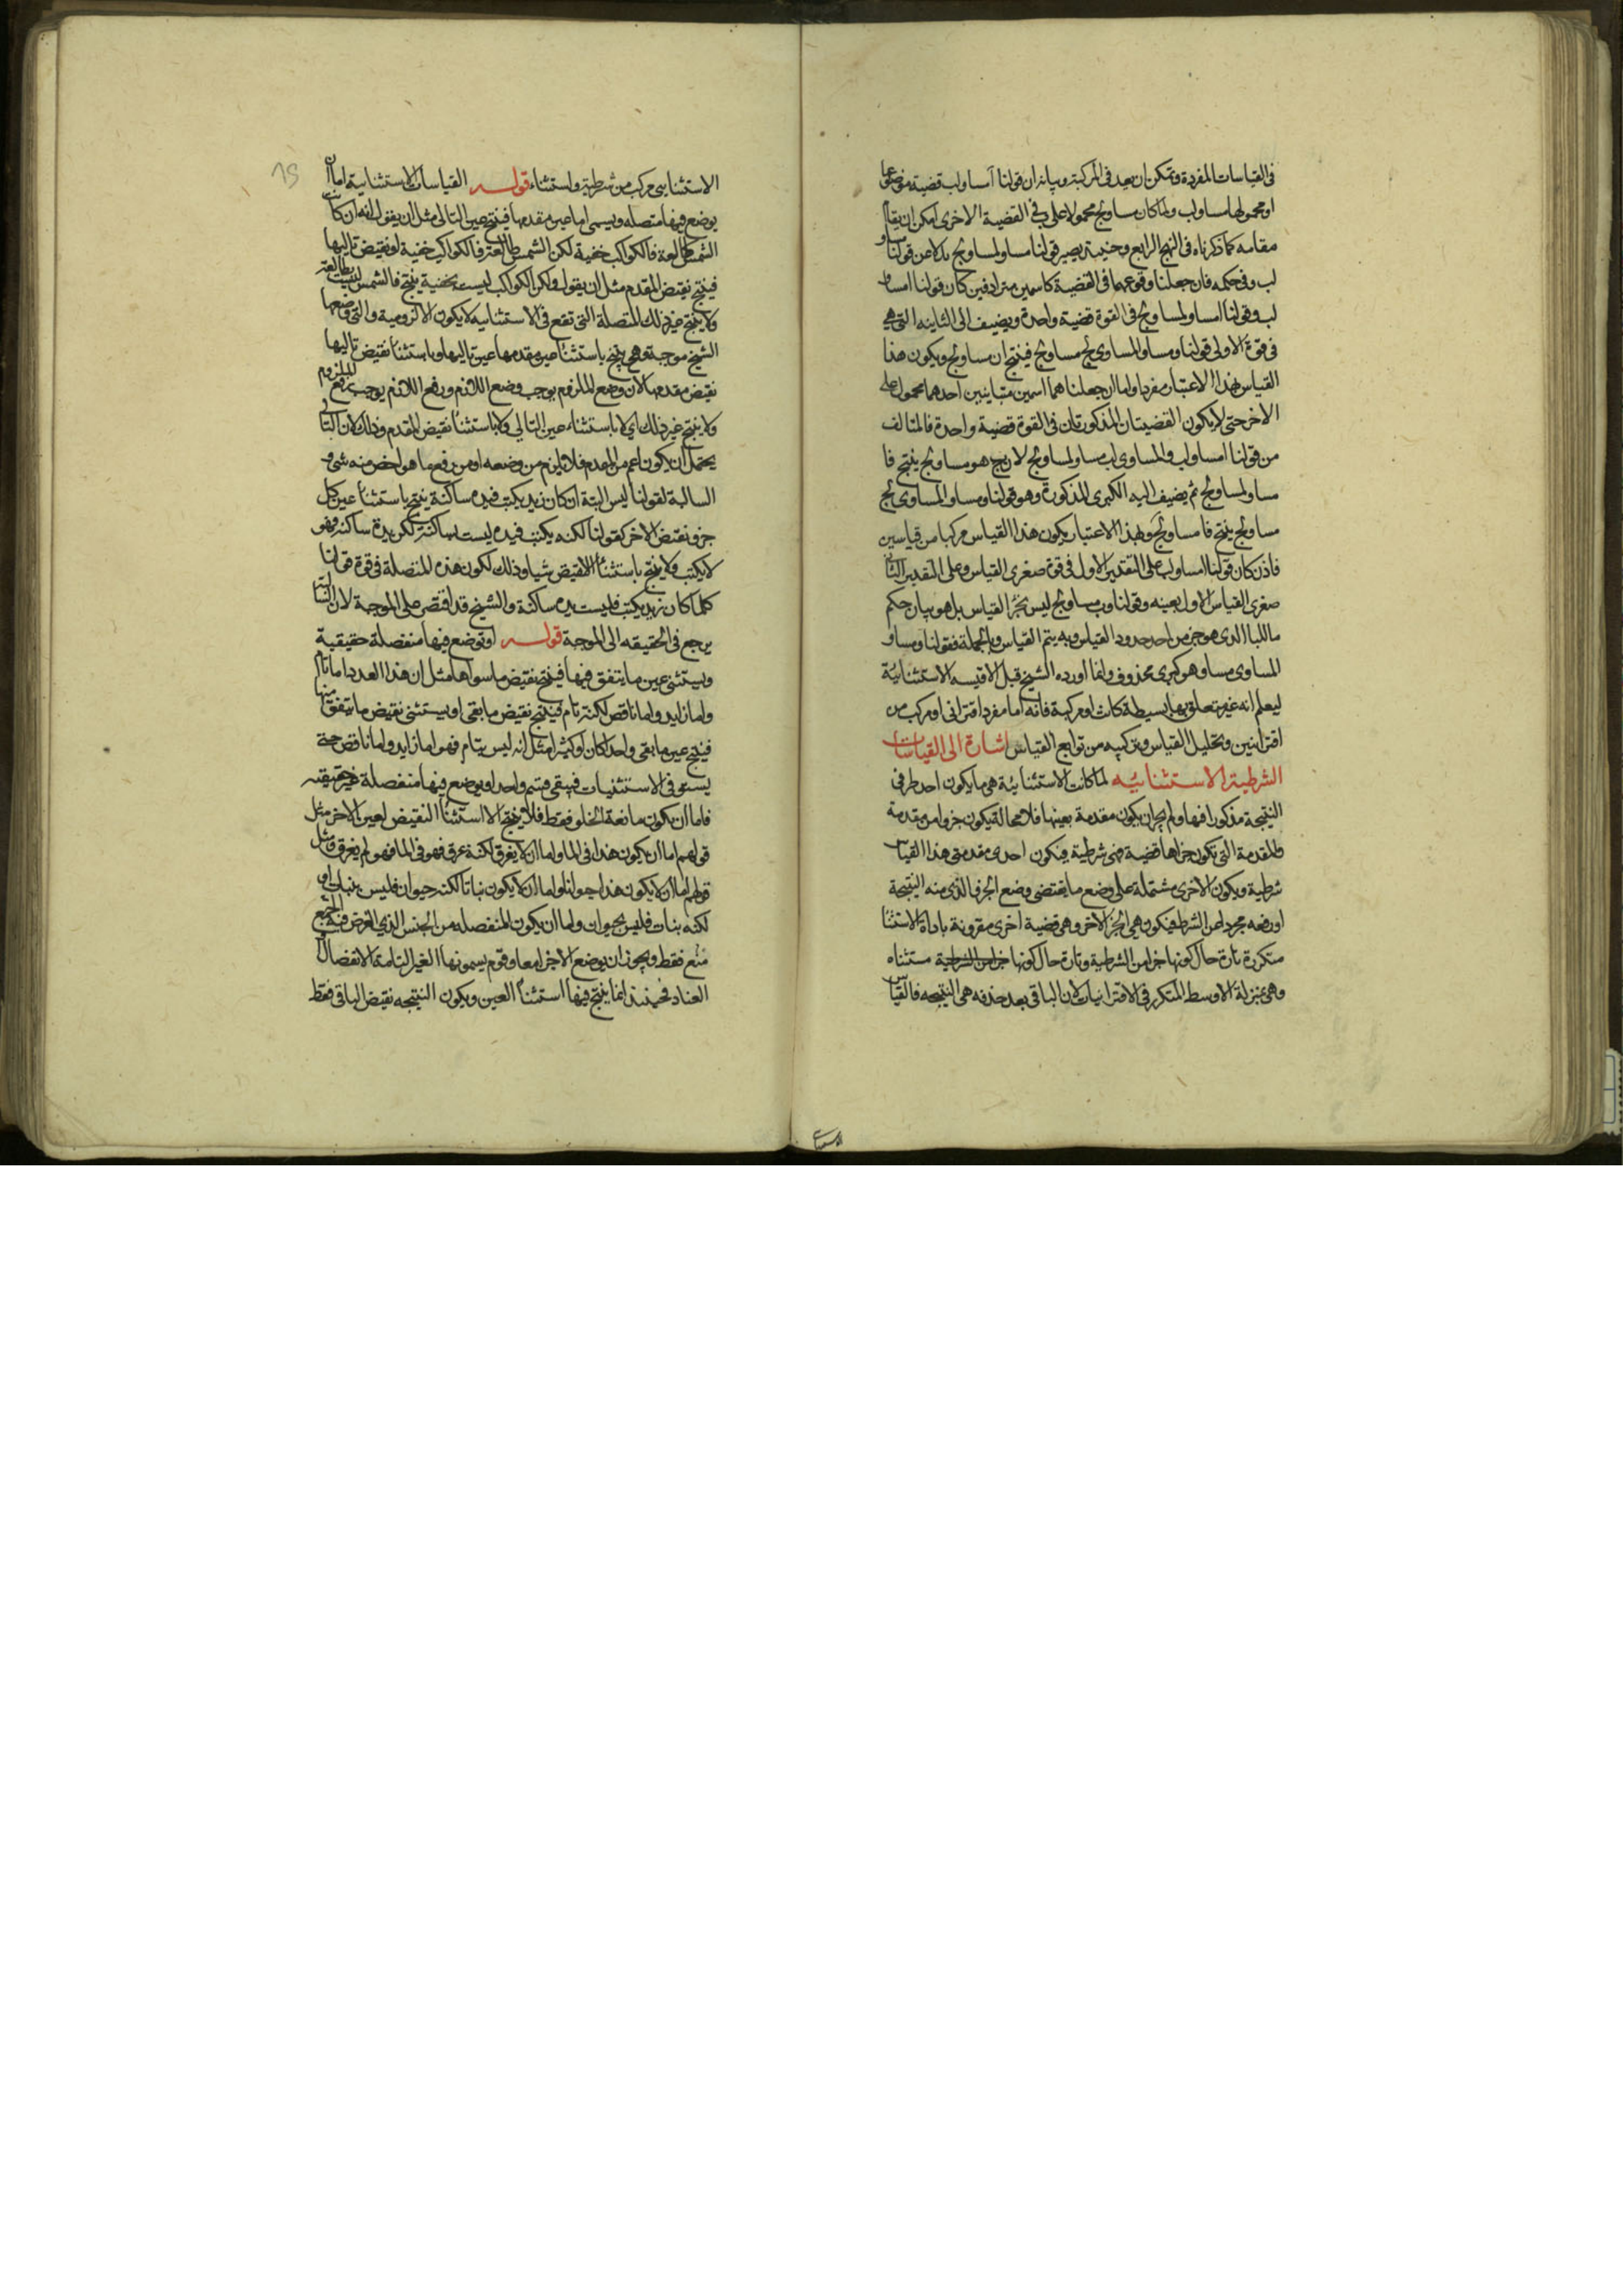 فى القياسات المفردة ويمكن ان يعد فى المركبة وبيانه ان قولنا آ مساولب قضية موضوعها
او محمولها مساولب ولما كان مساولج محمولا على ب فى القضية الاخرى امكن ان يقال
مقامه كما ذكرناه فى النهج الرابع وحينئذ يصير قولنا مساو لمساولج بدلا عن قولنا مساو
لب وفى حكمه فان جعلنا وقوعهما فى القضية كاسمين مترادفين كان قولنا ا مساو
لب وقولنا ا مساو لمساولج فى القوة قضية واحدة ويضيف الى الثانية التى هى
فى قوة الاولى قولنا ومساو المساوى لج مساولج فينتج ان مساولج ويكون هذا
القياس بهذا الاعتبار مفردا واما ان جعلناهما اسمين متباينين احدهما محمول على
الاخر حتى لا يكون القضيتان المذكورتان فى القوة قضية واحدة فالمتالف
من قولنا ا مساولب والمساوى لب مساو لمساولج لان ب هو مساولج ينتج فا
مساو لمساولج ثم يضيف اليه الكبرى المذكورة وهو قولنا ومساو المساوى لج
مساولج ينتج فا مساولج وبهذا الاعتبار يكون هذا القياس مركبا من قياسين
فاذن كان قولنا ا مساولب على التقدير الاول فى قوة صغرى القياس وعلى التقدير الثانى
صغرى القياس الاول بعينه وقولنا وب مساولج ليس بجزء القياس بل هو بيان حكم
ما للبا الذى هو جزء من احد حدود القياس وبه يتم القياس وبالجملة فقولنا ومساو
المساوى مساو هو كبرى محذوف وانما اورده الشيخ قبل الاقيسه الاستثنائية
ليعلم انه غير متعلق بها بسيطة كانت او مركبة فانه اما مفرد اقترانى او مركب من
اقترانيين وتحليل القياس وتركيبه من توابع القياس اشارة الى القياسات
الشرطية الاستثنائيه لما كانت الاستثنائية هى ما يكون احد طرفى
النتيجة مذكورا فيها ولم يجز ان يكون مقدمة بعينها فلا محالة يكون جزوا من مقدمة
والمقدمة التى يكون جزاها قضية فهى شرطية فيكون احدى مقدمتى هذا القياس
شرطية ويكون الاخرى مشتملة على وضع ما يقتضى وضع الجزء الذى منه النتيجة
او رفعه مجردا عن الشرط فيكون هى الجزء الاخر وهى قضية اخرى مقرونة باداة الاستثنا
متكررة تارة حال كونها جزا من الشرطية وتارة حال كونها مستثناه
وهى بمنزلة الاوسط المتكرر فى الاقترانيات لان الباقى بعد حذفه هى النتيجه فالقياس
الاستثنايى مركب من شرطية واستثناء قوله القياسات الاستثنايية اما ان
يوضع فيها متصله ويستثنى اما عين مقدمها فينتج عين التالى مثل ان يقول انه ان كانت
الشمس طالعة فالكواكب خفية لكن الشمس طالعة فالكواكب خفية او نقيض تاليها
فينتج نقيض المقدم مثل ان يقول ولكن الكواكب ليست بخفية ينتج فالشمس ليست بطالعة
ولا ينتج غير ذلك المتصلة التى تقع فى الاستثنايية لا يكون الا لزومية والتى وضعها
الشيخ موجبة وهى ينتج باستثنا عين مقدمها عين تاليها وباستثنا نقيض تاليها
نقيض مقدمها لان وضع الملزوم يوجب وضع اللازم ورفع اللازم يوجب رفع الملزوم
ولا ينتج غير ذلك اى لا باستثناء عين التالى ولا باستثنا نقيض المقدم وذلك لان التالى
يحتمل ان يكون اعم من المقدم فلا يلزم من وضعه او من رفع ما هو اخص منه شى و
السالبة لقولنا ليس البتة ان كان زيد يكتب فيده ساكنة ينتج باستثنا عين كل
جزو نقيض الاخر كقولنا لكنه يكتب فيده ليست بساكنة لكن يده ساكنة فهو
لا يكتب ولا ينتج باستثنا النقيض شيا وذلك لكون هذه المتصلة فى قوة قولنا
كلما كان زيد يكتب فليست يده ساكنة والشيخ قد اقتصر على الموجبة لان السالبة
يرجع فى الحقيقه الى الموجبة قوله او توضع فيها منفصلة حقيقية
ويستثنى عين ما يتفق فيها فينتج نقيض ما سواها مثل ان هذا العدد اما تام
واما زايد واما ناقص لكنه تام فينتج نقيض ما بقى او يستثنى نقيض ما يتفق منها
فينتج عين ما بقى واحدا كان او كثيرا مثل انه ليس بتام فهو اما زايد واما ناقص حتى
يستوفى الاستثنيات فيبقى قسم واحد او يوضع فيها منفصلة غير حقيقيه
فاما ان يكون مانعة الخلو فقط فلا ينتج الا استثنا النقيض لعين الاخر مثل
قولهم اما ان يكون هذا فى الما واما ان لا يغرق لكنه غرق فهو فى الما فهو لم يغرق ومثل
قولهم اما ان لا يكون هذا حيوانا واما ان لا يكون نباتا لكنه حيوان فليس بنبات او
لكنه بنات فليس بحيوان واما ان يكون المنفصله من الجنس الذى الغرض فيه الجمع
منع فقط ويجوز ان يرفع الاجزا معا وقوم يسمونها الغير التامة الانفصال او
العناد فحينئذ انما ينتج فيها استثنا العين ويكون النتيجه نقيض الباقى فقط